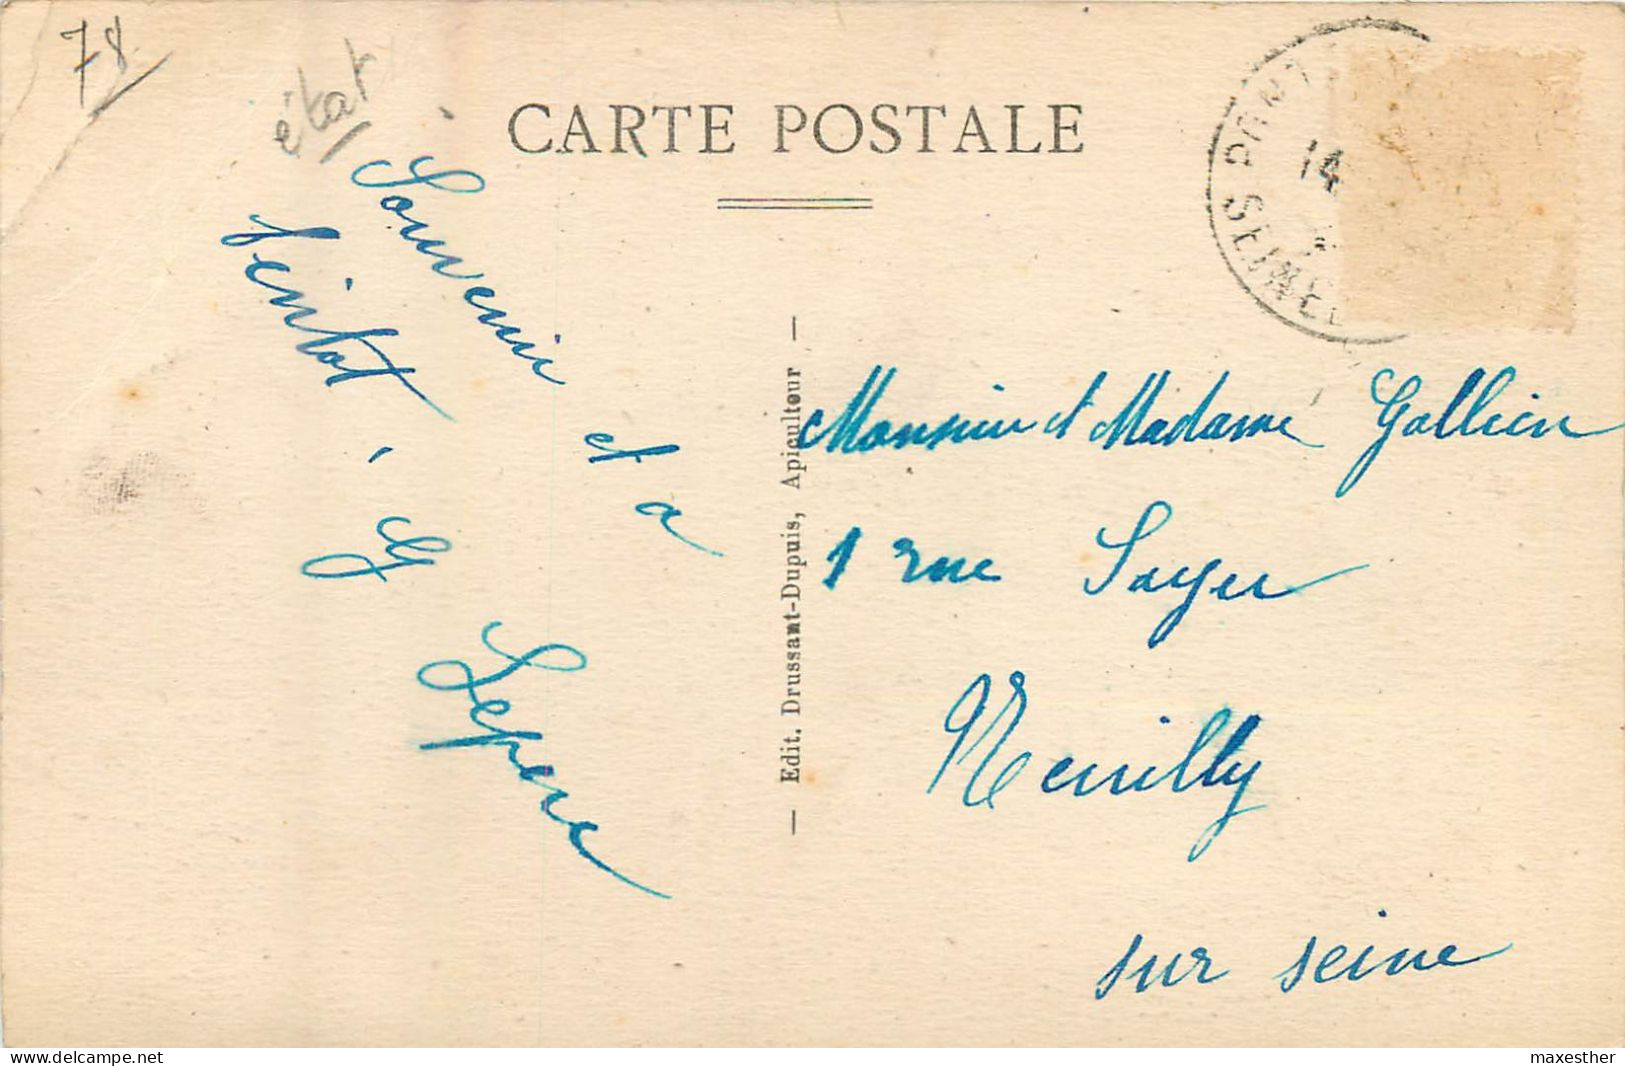 78
état
CARTE POSTALE
14
SEINE
Souvenir et a
bientot
G Lepere
— Edit. Drussant-Dupuis, Apiculteur —
Monsieur et Madame Gallien
1 rue Soyer
Neuilly
sur seine
www.delcampe.net
maxesther